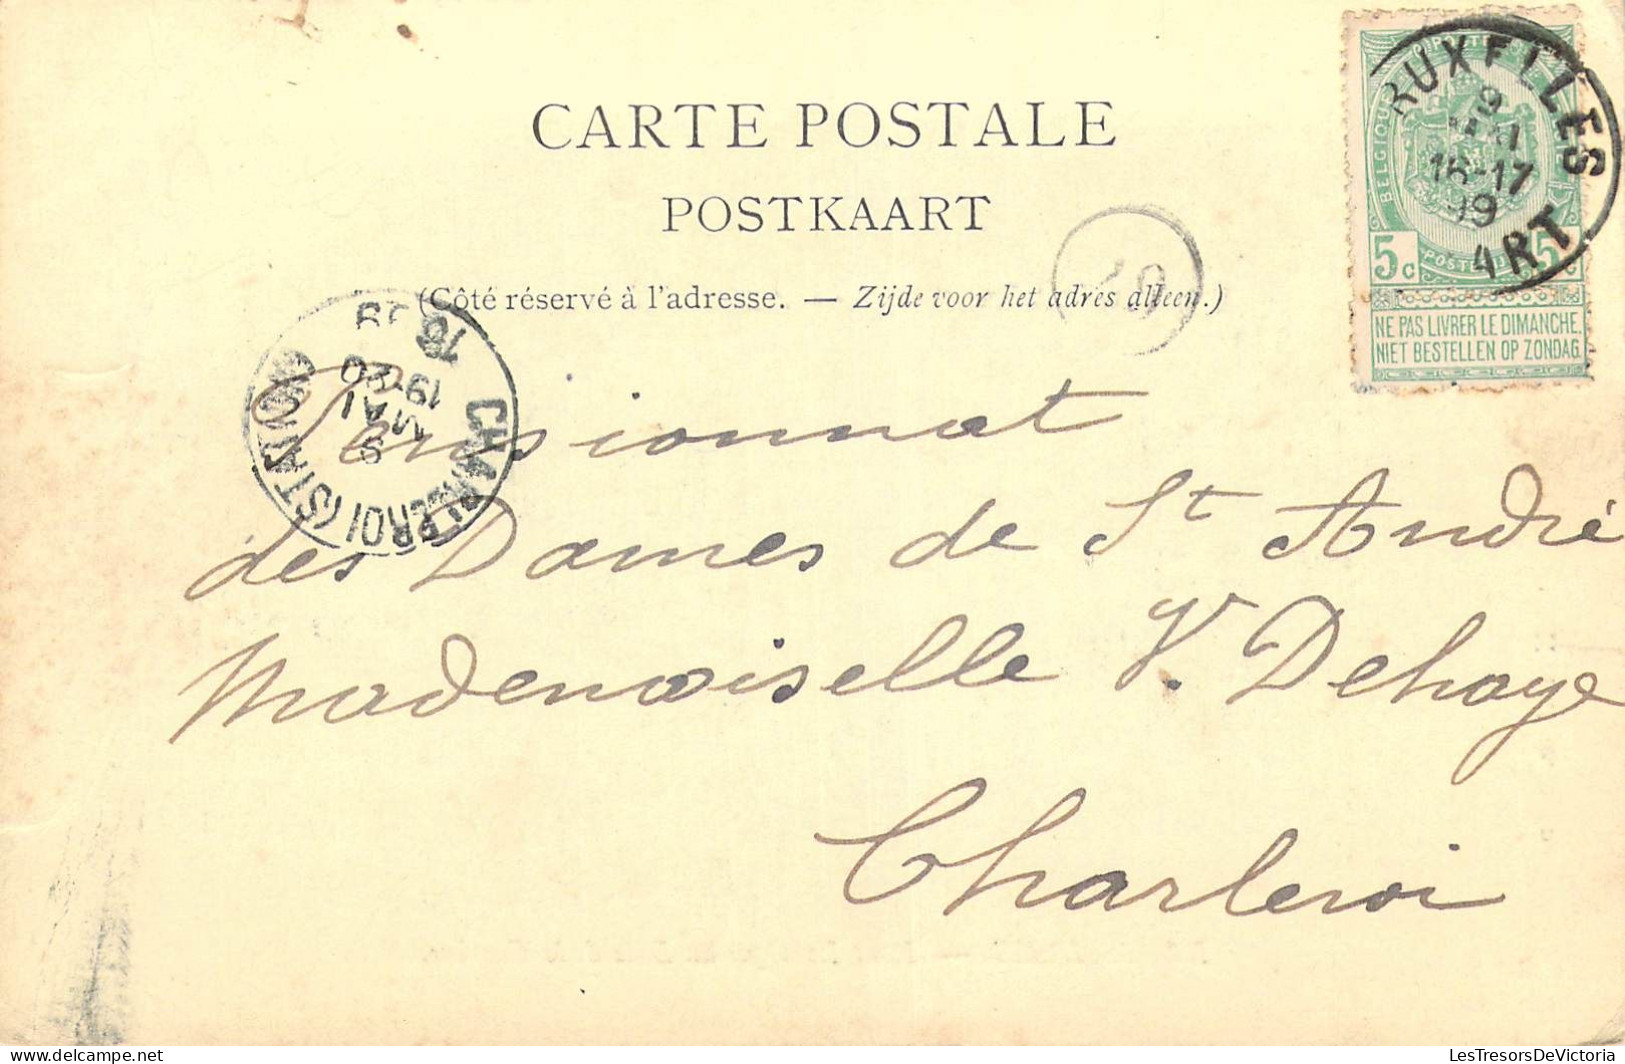 CARTE POSTALE
POSTKAART
(Côté réservé à l'adresse. — Zijde voor het adres alleen.)
BRUXELLES
9
MAI
16-17
99
BELGIQUE
5c 5c
NE PAS LIVRER LE DIMANCHE.
NIET BESTELLEN OP ZONDAG
CHARLEROI (STATION)
9
MAI
19-20
Pensionnat
des Dames de St André
Mademoiselle V. Dehaye
Charleroi
delcampe.net
LesTresorsDeVictoria